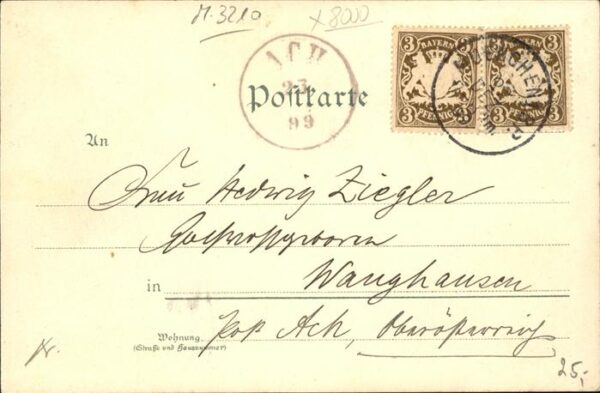 M. 3210
x 8000
3 BAYERN 3
PFENNIG
3 BAYERN 3
PFENNIG
MUENCHEN
ACH
23
99
Postkarte
An
Frau Hedwig Ziegler
in Wanghausen
Wohnung
(Straße und Hausnummer)
Post Ach, Oberösterreich
25,-